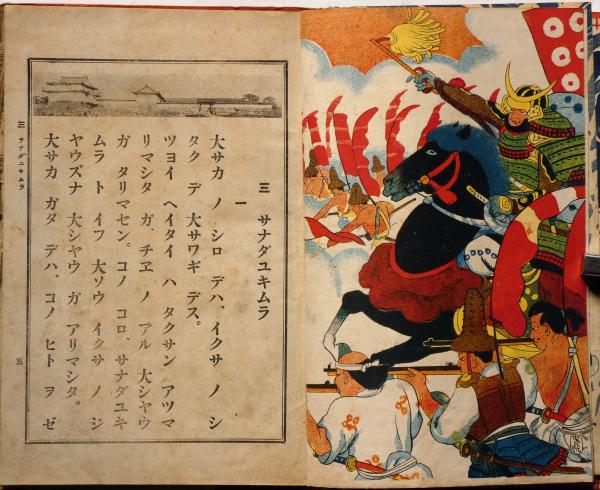 三 サナダユキムラ
一
大サカ ノ シロ デハ、イクサ ノ シ
タク デ 大サワギ デス。
ツヨイ ヘイタイ ハ タクサン アツマ
リマシタ ガ、チヱ ノ アル 大シヤウ
ガ タリマセン。コノ コロ、サナダユキ
ムラ ト イフ 大ソウ イクサ ノ ジ
ヤウズナ 大シヤウ ガ アリマシタ。
大サカ ガタ デハ、コノ ヒト ヲ ゼ
三 サナダユキムラ
五